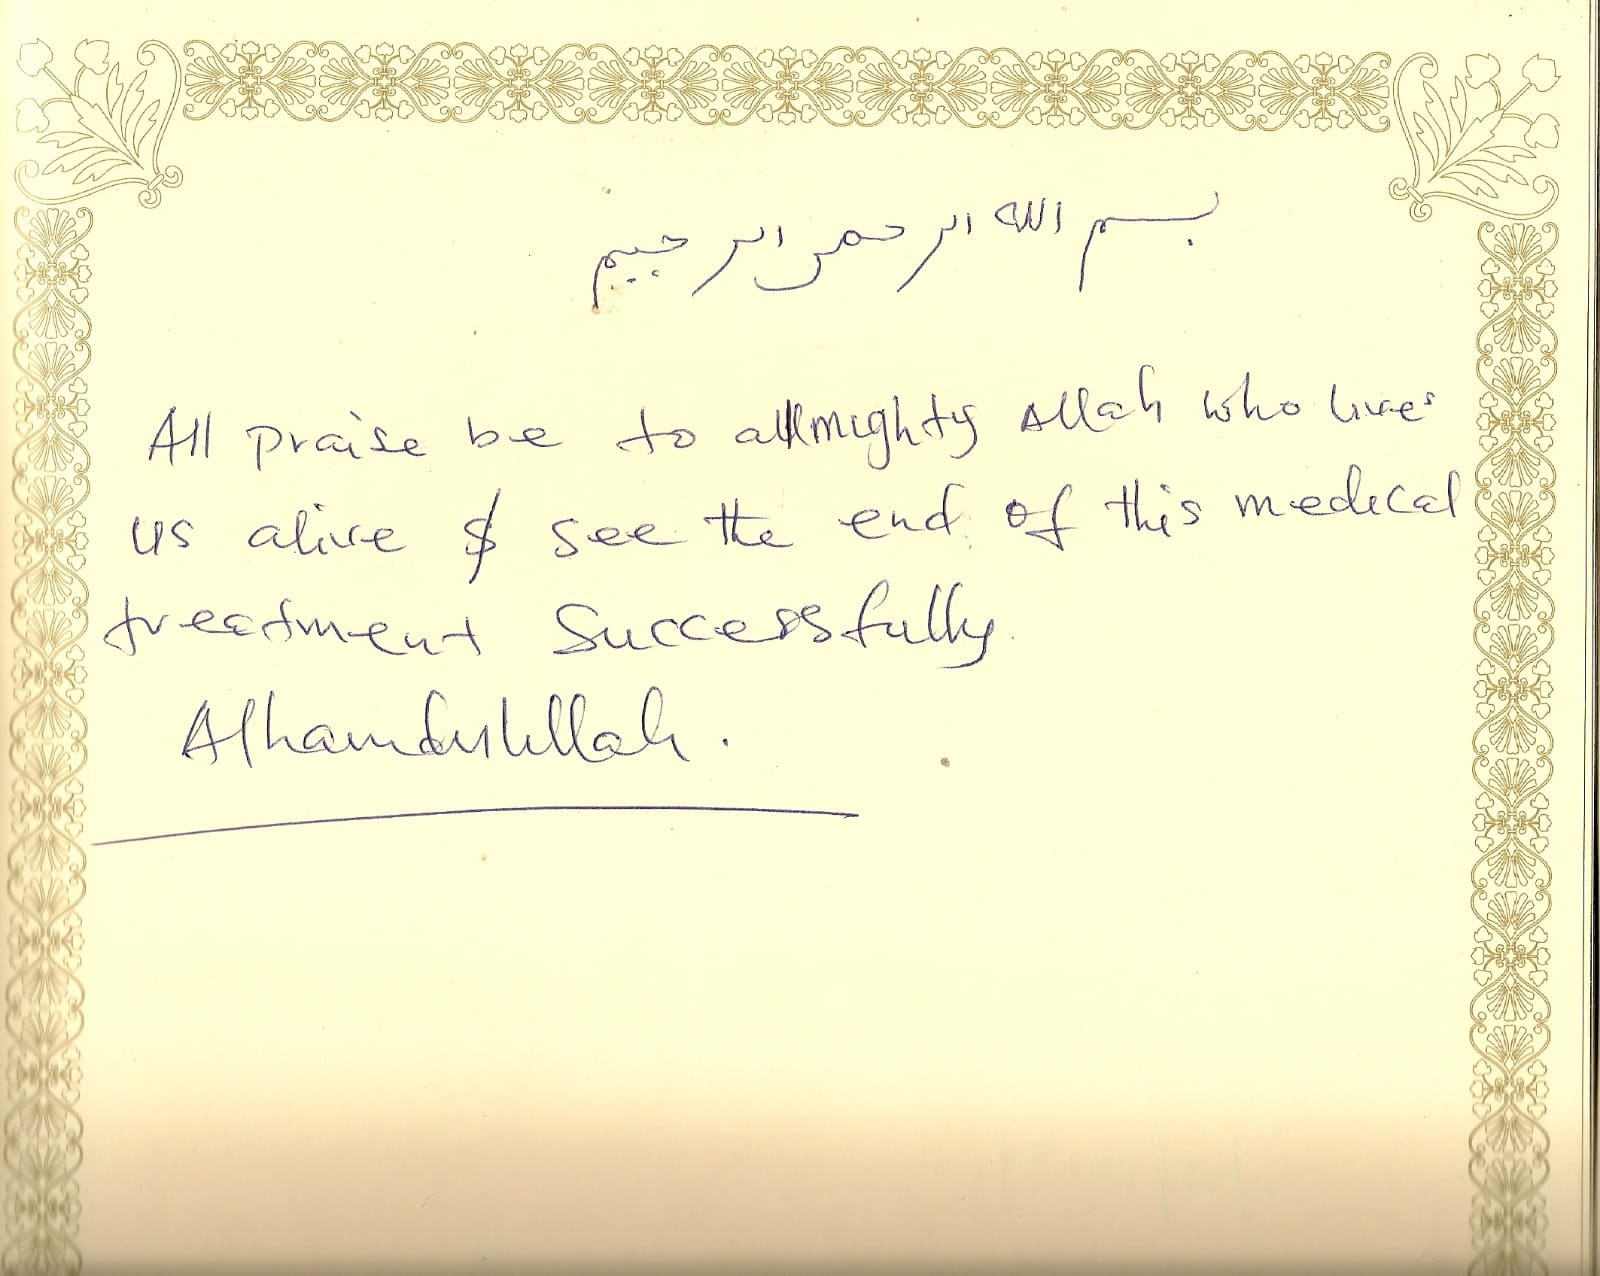 بسم الله الرحمن الرحيم
All praise be to allmighty Allah who lives
us alive & see the end of this medical
treatment Successfully.
Alhamdulillah.